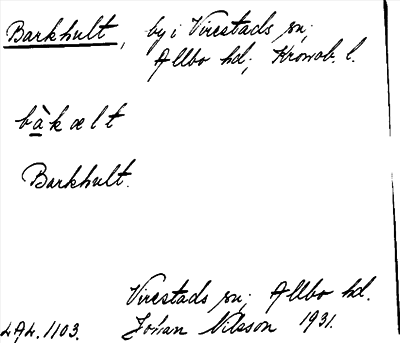 Barkhult, by i Virestads sn;
Allbo hd; Kronob. l.
bàkælt
Barkhult.
Virestads sn; Allbo hd.
LAL. 1103. Johan Nilsson 1931.